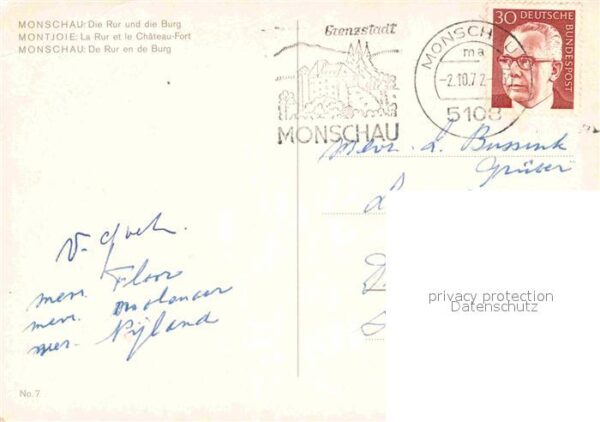 MONSCHAU: Die Rur und die Burg
MONTJOIE: La Rur et le Château-Fort
MONSCHAU: De Rur en de Burg
Grenzstadt
MONSCHAU
MONSCHAU
ma
-2.10.72-
5108
30 DEUTSCHE
BUNDESPOST
Mevr. L. Bussink
Grüber
V.
mevr. Floor
mevr.
mevr. Nijland
privacy protection
Datenschutz
No. 7